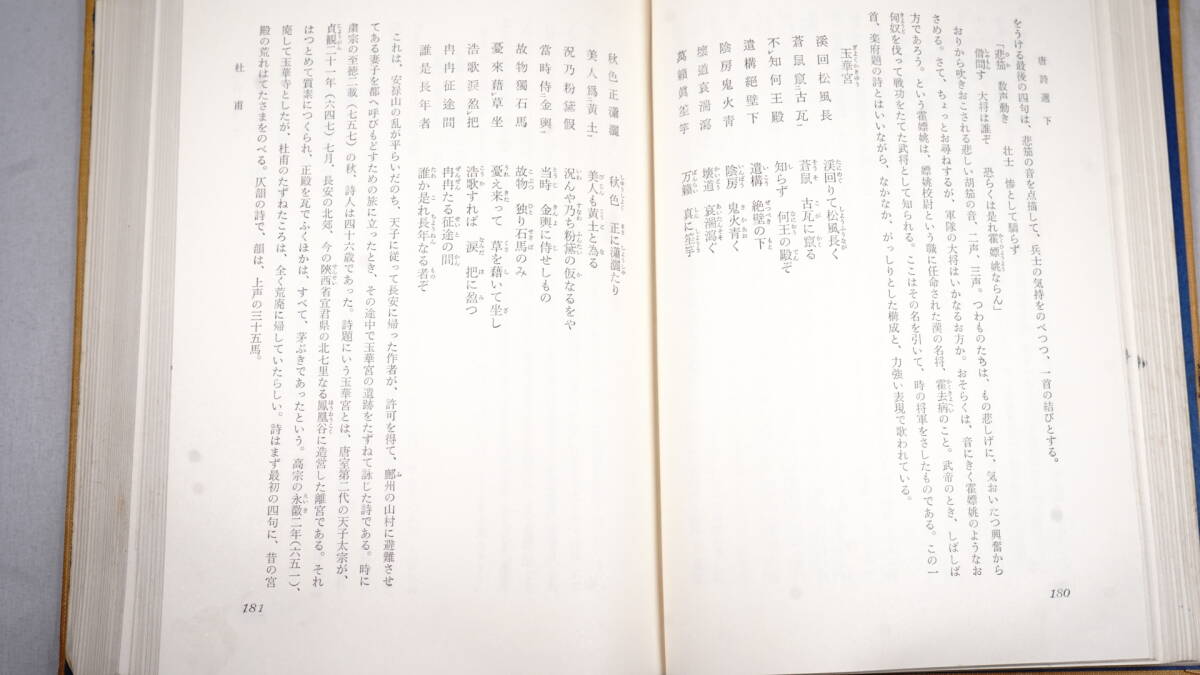 唐詩選 下
をうける最後の四句は、悲笳の音を点描して、兵士の気持をのべつつ、一首の結びとする。
「悲笳 数声動き 壮士 惨として驕らず
借問す 大将は誰ぞ 恐らくは是れ霍嫖姚ならん」
おりから吹きおこされる悲しい胡笳の音、一声、三声。つわものたちは、もの悲しげに、気おいたつ興奮から
さめる。さて、ちょっとお尋ねするが、軍隊の大将はいかなるお方か。おそらくは、音にきく霍嫖姚のようなお
方であろう。という霍嫖姚は、嫖姚校尉という職に任命された漢の名将、霍去病のこと。武帝のとき、しばしば
匈奴を伐って戦功をたてた武将として知られる。ここはその名を引いて、時の将軍をさしたものである。この一
首、楽府題の詩とはいいながら、なかなか、がっしりとした構成と、力強い表現で歌われている。
玉華宮
溪回松風長 渓回りて松風長く
蒼鼠竄古瓦 蒼鼠 古瓦に竄る
不知何王殿 知らず 何王の殿ぞ
遺構絕壁下 遺構 絶壁の下
陰房鬼火青 陰房 鬼火青く
壞道哀湍瀉 壊道 哀湍瀉ぐ
萬籟眞笙竽 万籟 真に笙竽
180
秋色正瀟灑 秋色 正に瀟灑たり
美人爲黃土 美人も黄土と為る
況乃粉黛假 況んや乃ち粉黛の仮なるをや
當時侍金輿 当時 金輿に侍せしもの
故物獨石馬 故物 独り石馬のみ
憂來藉草坐 憂え来って 草を藉いて坐し
浩歌淚盈把 浩歌すれば 涙 把に盈つ
冉冉征途間 冉冉たる征途の間
誰是長年者 誰か是れ長年なる者ぞ
これは、安禄山の乱が平らいだのち、天子に従って長安に帰った作者が、許可を得て、鄜州の山村に避難させ
てある妻子を都へ呼びもどすための旅に立ったとき、その途中で玉華宮の遺跡をたずねて詠じた詩である。時に
粛宗の至徳二載(七五七)の秋、詩人は四十六歳であった。詩題にいう玉華宮とは、唐室第二代の天子太宗が、
貞観二十一年(六四七)七月、長安の北郊、今の陝西省宜君県の北七里なる鳳凰谷に造営した離宮である。それ
はつとめて質素につくられ、正殿を瓦でふくほかは、すべて、茅ぶきであったという。高宗の永徽二年(六五一)、
廃して玉華寺としたが、杜甫のたずねたころは、全く荒廃に帰していたらしい。詩はまず最初の四句に、昔の宮
殿の荒れはてたさまをのべる。仄韻の詩で、韻は、上声の三十五馬。
杜 甫
181